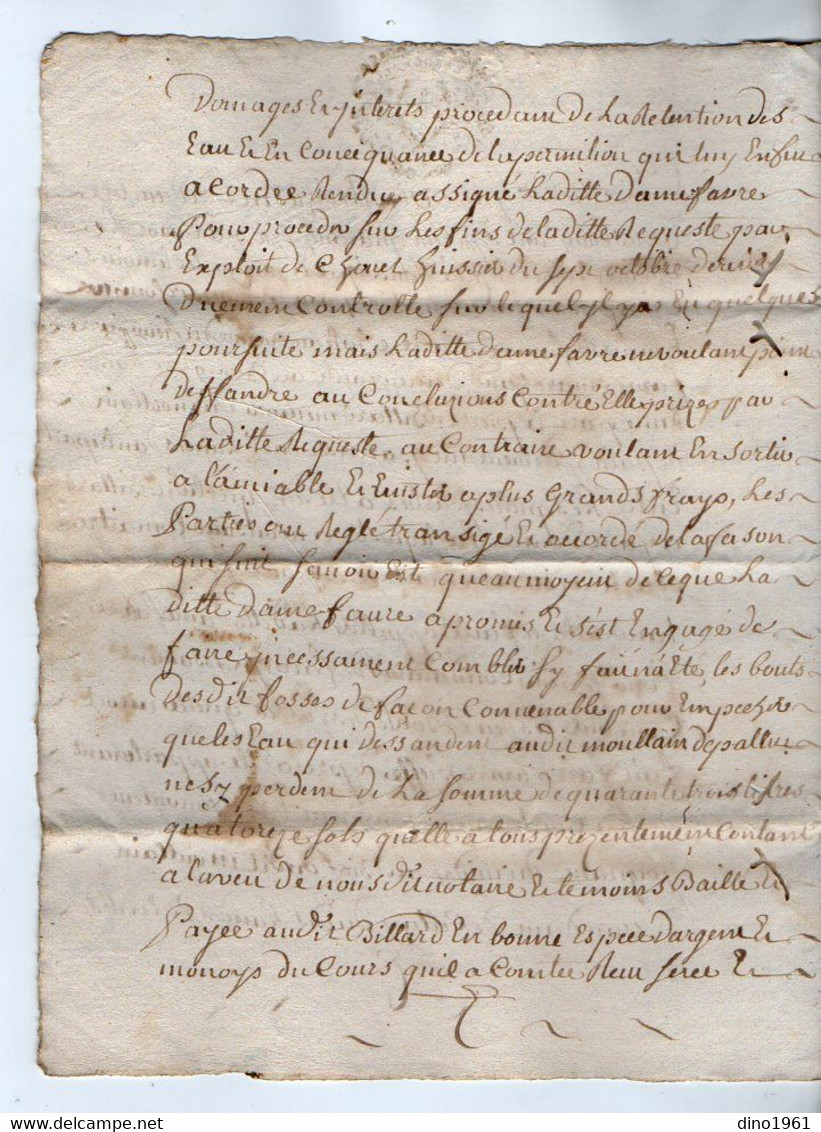 Domages Et jnterets procedant de La Retention des
Eau Et En Conciquance de la permition qui luy Enfut
acordee Rendue assigné Laditte dame favre
Pour proceder sur Les fins de laditte Requeste par
Exploit de huissier du sept octobre dernier
Duement Controllé sur lequel jl y a Eu quelques
poursuite mais Laditte dame favre ne voulant point
deffandre au Concluzions Contre Elle prizes par
Laditte Requeste au Contraire voulant En sortir
a l'amiable Et Evister a plus Grands frays, Les
Parties ont Reglé transigé Et accordé de la fason
qui suit savoir Est que au moyein de ce que La
ditte Dame faure a promis Et s'est Engagé de
faire jncessament Combler sy fait na Eté les bouts
desdit fosses de façon Convenable pour Empecher
que les Eau qui dessandent audit moullain de pallu
ne sy perdent de La somme de quarante trois livres
quatorze sols quelle a tous prezentement Contant
a laveu de nous dit notaire Et temoins Baille Et
Payée audit Billard En bonne Espece dargent Et
monoys du Cours quil a Comtee Reeu seree Et
delcampe.net
dino1961